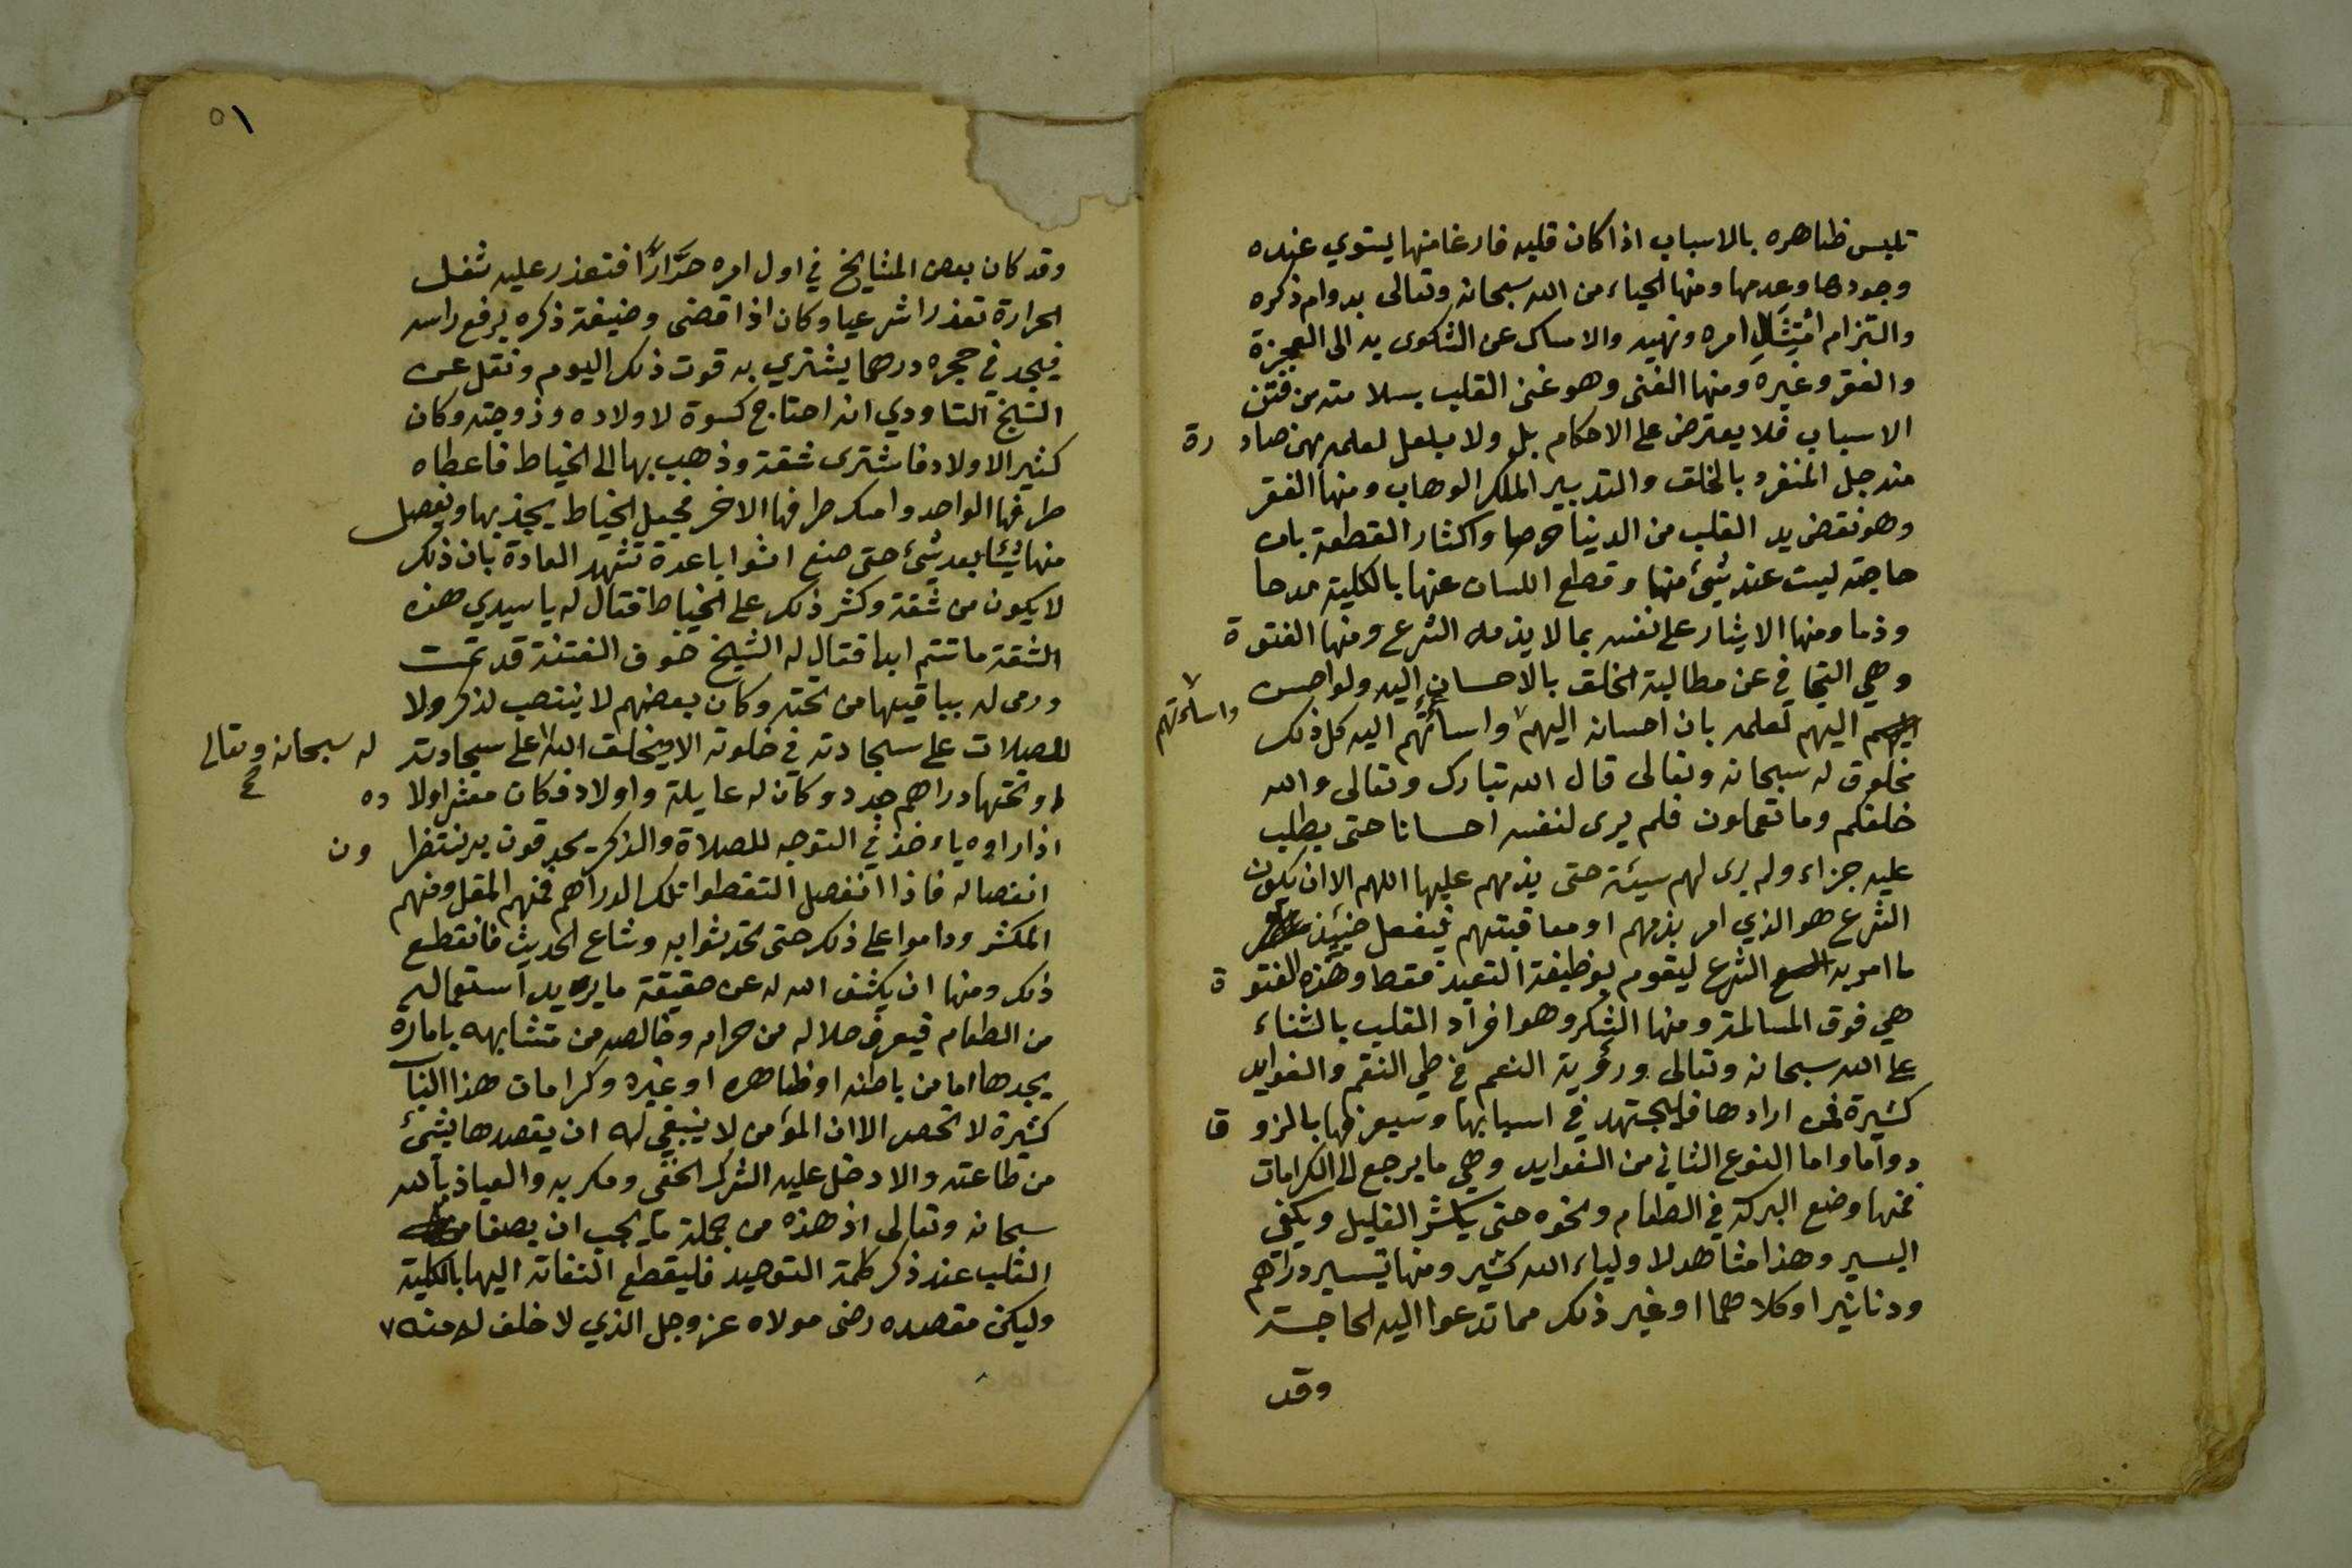 تلبس ظاهره بالاسباب اذا كان قلبه فارغا منها يستوي عنده
وجودها وعدمها ومنها الحياء من الله سبحانه وتعالى بدوام ذكره
والتزام امتثال امره ونهيه والامساك عن الشكوى به الى العجزة
والفقر وغيره ومنها الغنى وهو غنى القلب بسلامته من فتن
الاسباب فلا يعترض على الاحكام بلو ولا بلعل لعلمه بمن صادرة
منه جل المنفرد بالخلق والتدبير الملك الوهاب ومنها الفقر
وهو نفض يد القلب من الدنيا حرصا واكثار القطعه بان
حاجته ليست عند شيئ منها وقطع اللسان عنها بالكلية مدحا
وذما ومنها الايثار على نفسه بما لا يذمه الشرع ومنها الفتوة
وهي التجافي عن مطالبة الخلق بالاحسان اليه ولو احسن
اليهم لعلمه بان احسانه اليهم واسائتهم اليه كل ذلك
واساءتهم
مخلوق له سبحانه وتعالى قال الله تبارك وتعالى والله
خلقكم وما تعملون فلم يرى لنفسه احسانا حتى يطلب
عليه جزاء ولم يرى لهم سيئة حتى يذمهم عليها اللهم الا ان يكون
الشرع هو الذي امر بذمهم او معاقبتهم فيفعل حينئذ
ما امر به الشرع ليقوم بوظيفة التعبد فقط وهذه الفتوة
هي فوق المسالمة ومنها الشكر وهو افراد القلب بالثناء
على الله سبحانه وتعالى ورؤية النعم في طي النقم والفوايد
كثيرة فمن ارادها فليجتهد في اسبابها وسيعرفها بالمزوقا
دواما واما النوع الثاني من الفوايد وهي ما يرجع الى الكرامات
فمنها وضع البركة في الطعام ونحوه حتى يكثر القليل ويكفي
اليسير وهذا مشاهد لاولياء الله كثير ومنها تيسير دراهم
ودنانير او كلاهما او غير ذلك مما تدعوا اليه الحاجة
وقد
٥١
وقد كان بعض المشايخ في اول امره حرارا فتعذر عليه شغل
الحرارة تعذرا شرعيا وكان اذا قضى وضيفة ذكره يرفع راسه
فيجد في حجره درهما يشتري به قوت ذلك اليوم ونقل عن
الشيخ التاودي انه احتاج كسوة لاولاده وزوجته وكان
كثير الاولاد فاشترى شقة وذهب بها الى الخياط فاعطاه
طرفها الواحد وامسك طرفها الاخر فجعل الخياط يجذبها ويفصل
منها شيئا بعد شيئ حتى صنع اثوابا عدة تشهد العادة بان ذلك
لا يكون من شقة وكثر ذلك على الخياط فقال له يا سيدي هذه
الشقة ما تتم ابدا فقال له الشيخ خوف الفتنة قد تمت
ورمى له بباقيها من تحته وكان بعضهم لا ينتصب لذكر ولا
للصلات على سجادته في خلوته الا ويخلق الله على سجادته
له سبحانه وتعالى
او تحتها دراهم جدد وكان له عايلة واولاد فكان معثر اولاده
اذا راوه ياءخذ في التوجه للصلاة والذكر يحدقون به ينتظرون
انفصاله فاذا انفصل التقطوا تلك الدراهم فمنهم المقل ومنهم
المكثر وداموا على ذلك حتى تحدثوا به وشاع الحديث فانقطع
ذلك ومنها ان يكشف الله له عن حقيقة ما يريد استعماله
من الطعام فيعرف حلاله من حرامه وخالصه من متشابهه بامارة
يجدها اما من باطنه او ظاهره او غيره وكرامات هذا الباب
كثيرة لا تحصر الا ان المؤمن لا ينبغي له ان يقصدها بشيئ
من طاعته والا دخل عليه الشرك الخفي ومكر به والعياذ بالله
سبحانه وتعالى اذ هذه من جملة ما يجب ان يصفا منه
القلب عند ذكر كلمة التوحيد فليقطع التفاته اليها بالكلية
وليكن مقصده رضى مولاه عز وجل الذي لا خلف له منه